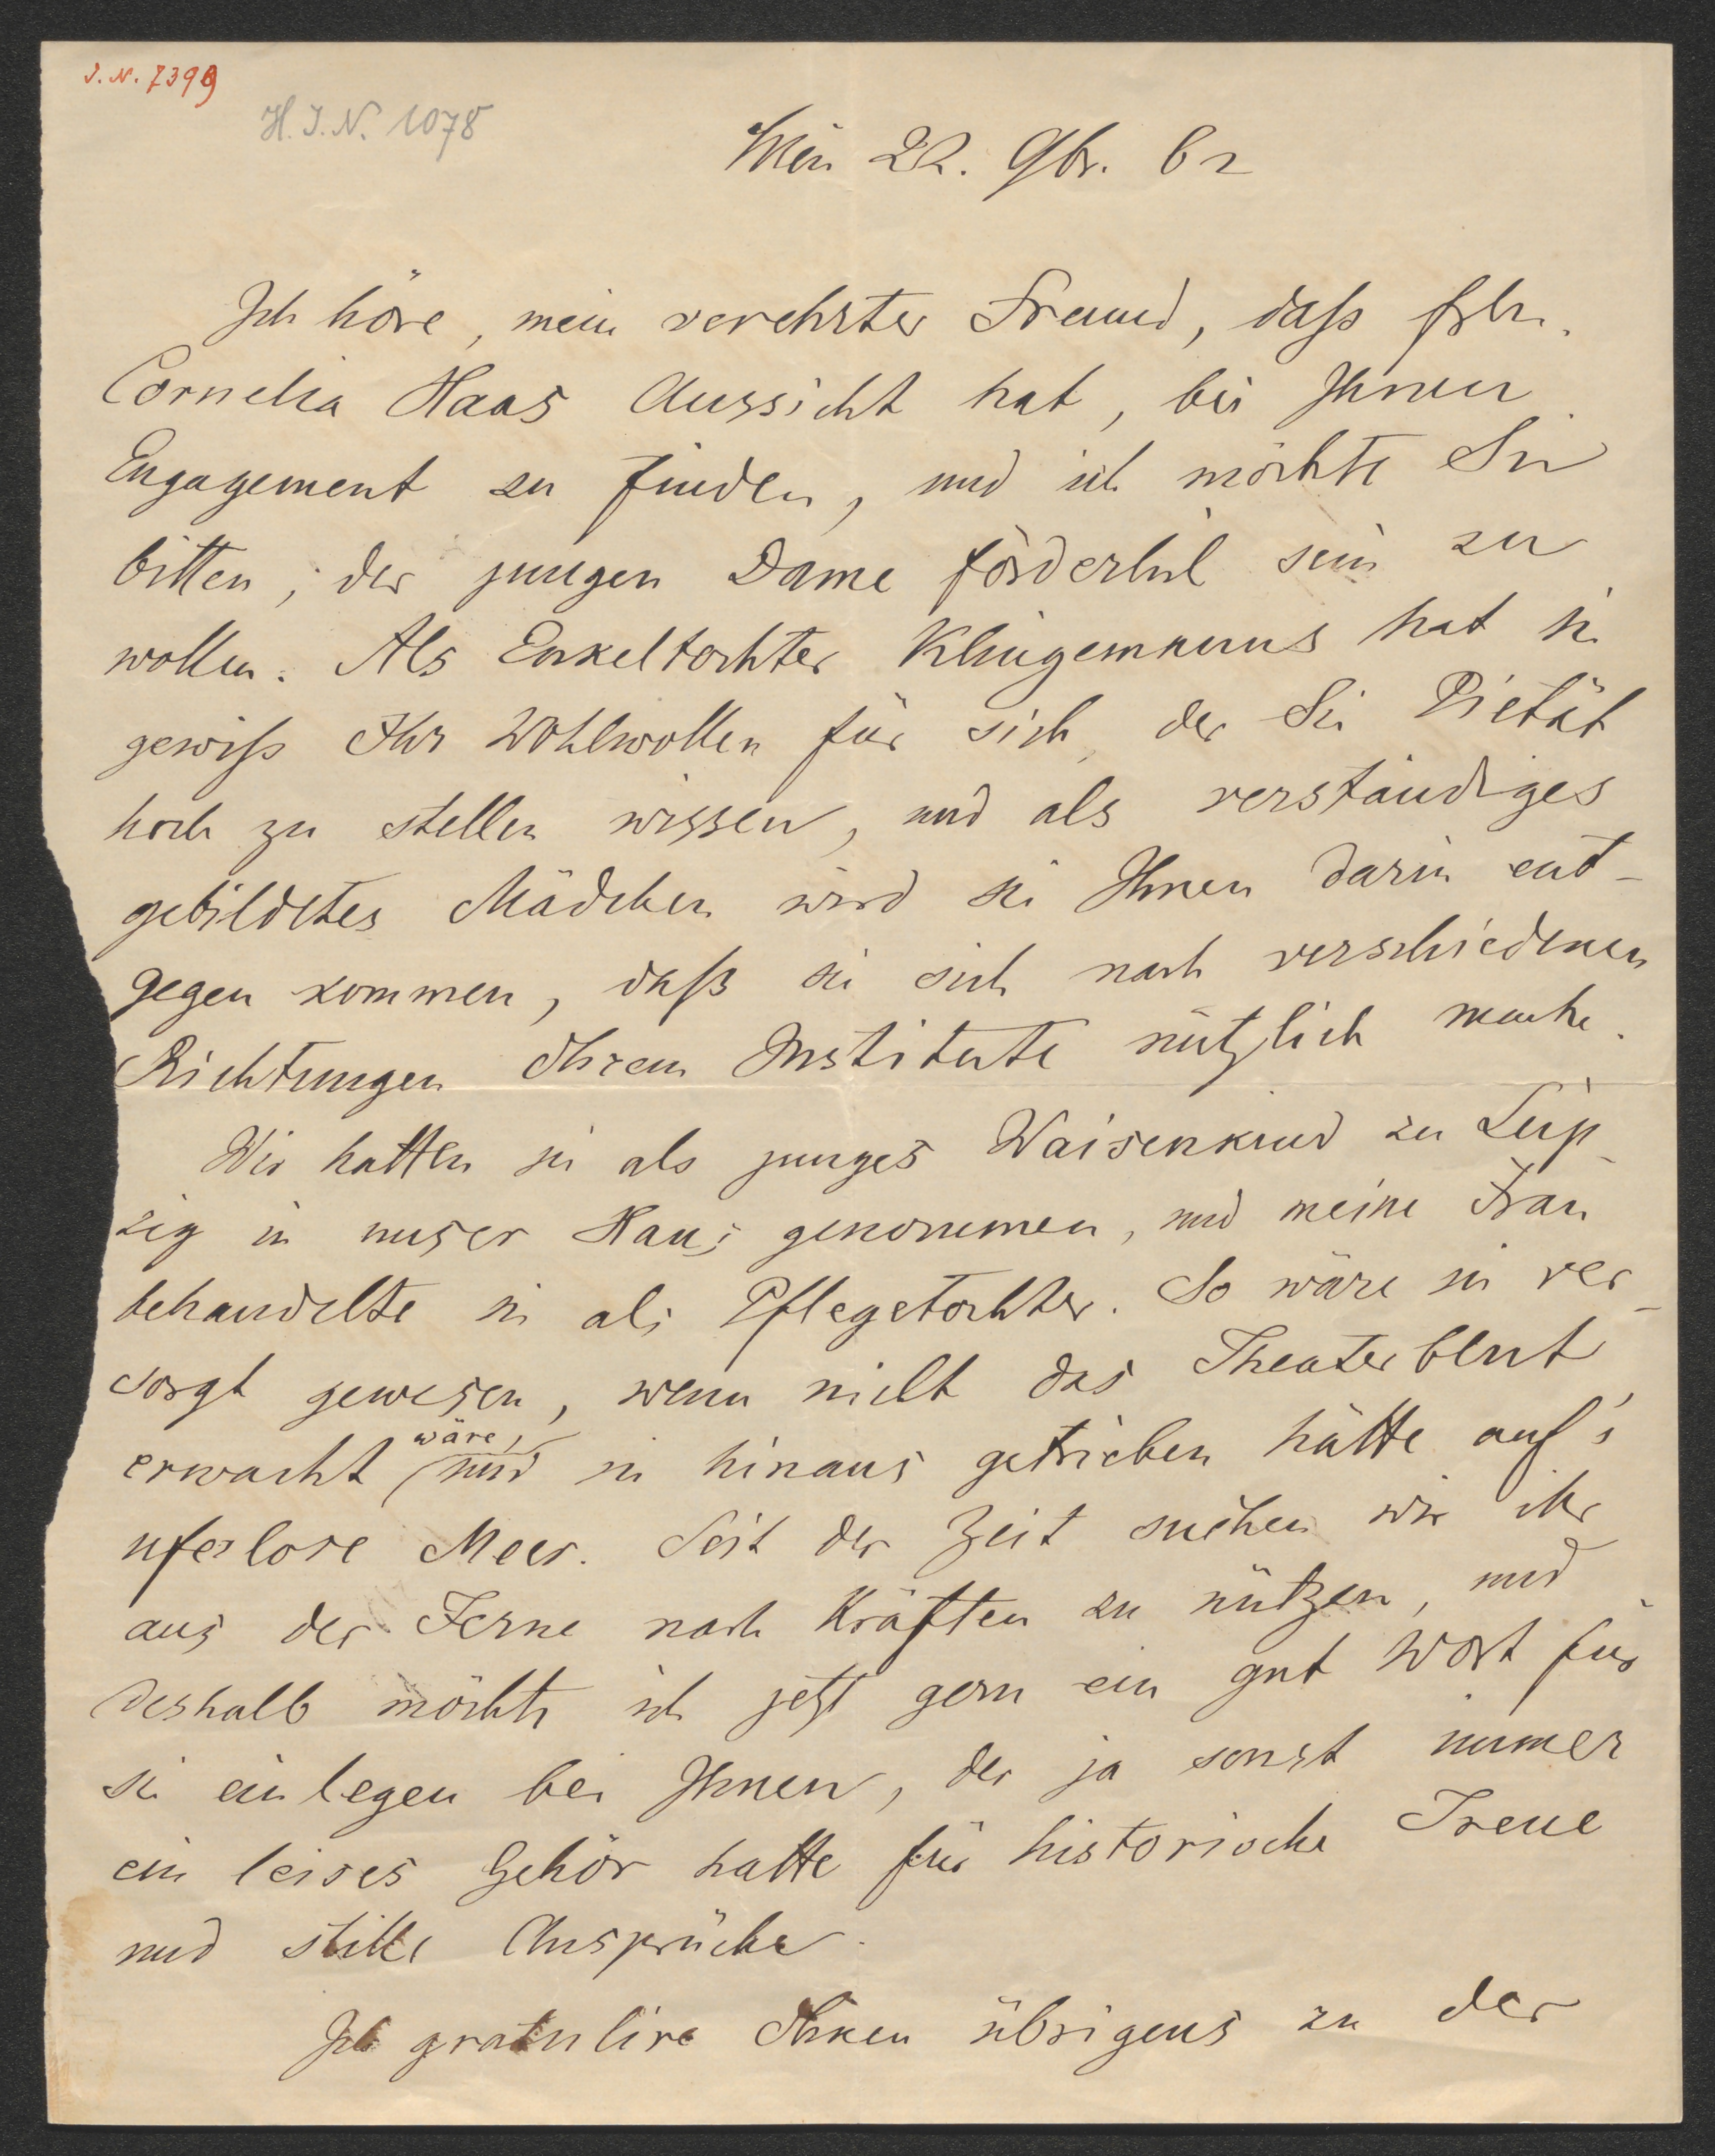 J. N. 7399
H. I. N. 1078
Wien 22. 9br. 62
Ich höre, mein verehrter Freund, daß Frln.
Cornelia Haas Aussicht hat, bei Ihnen
Engagement zu finden, und ich möchte Sie
bitten, der jungen Dame förderlich sein zu
wollen. Als Enkeltochter Klingemanns hat sie
gewiß Ihr Wohlwollen für sich, der Sie Pietät
hoch zu stellen wissen, und als verständiges
gebildetes Mädchen wird sie Ihnen darin ent-
gegen kommen, daß sie sich nach verschiedenen
Richtungen Ihrem Institute nützlich mache.
Wir hatten sie als junges Waisenkind zu Leip-
zig in unser Haus genommen, und meine Frau
behandelte sie als Pflegetochter. So wäre sie ver-
sorgt gewesen, wenn nicht das Theaterblut
wäre,
erwacht und sie hinaus getrieben hätte auf's
uferlose Meer. Seit der Zeit suchen wir ihr
aus der Ferne nach Kräften zu nützen, und
deshalb möchte ich jetzt gern ein gut Wort für
sie einlegen bei Ihnen, der ja sonst immer
ein leises Gehör hatte für historische Treue
und stille Ansprüche.
Ich gratulire Ihnen übrigens zu der